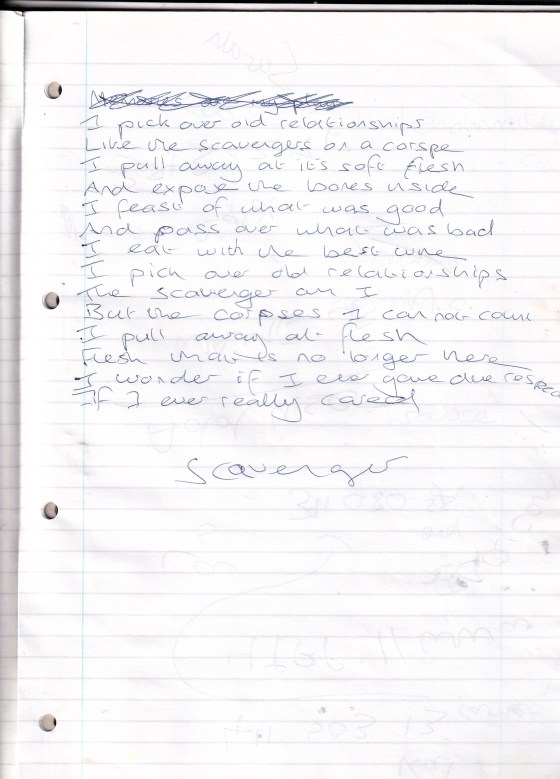 I pick over old relationships
Like the scavengers on a corspe
I pull away at it's soft flesh
And expose the bones inside
I feast of what was good
And pass over what was bad
I eat with the best wine
I pick over old relationships
The scavenger am I
But the corpses I can not count
I pull away at flesh
Flesh that is no longer here
I wonder if I ever gave due respec
If I ever really cared
Scavenger